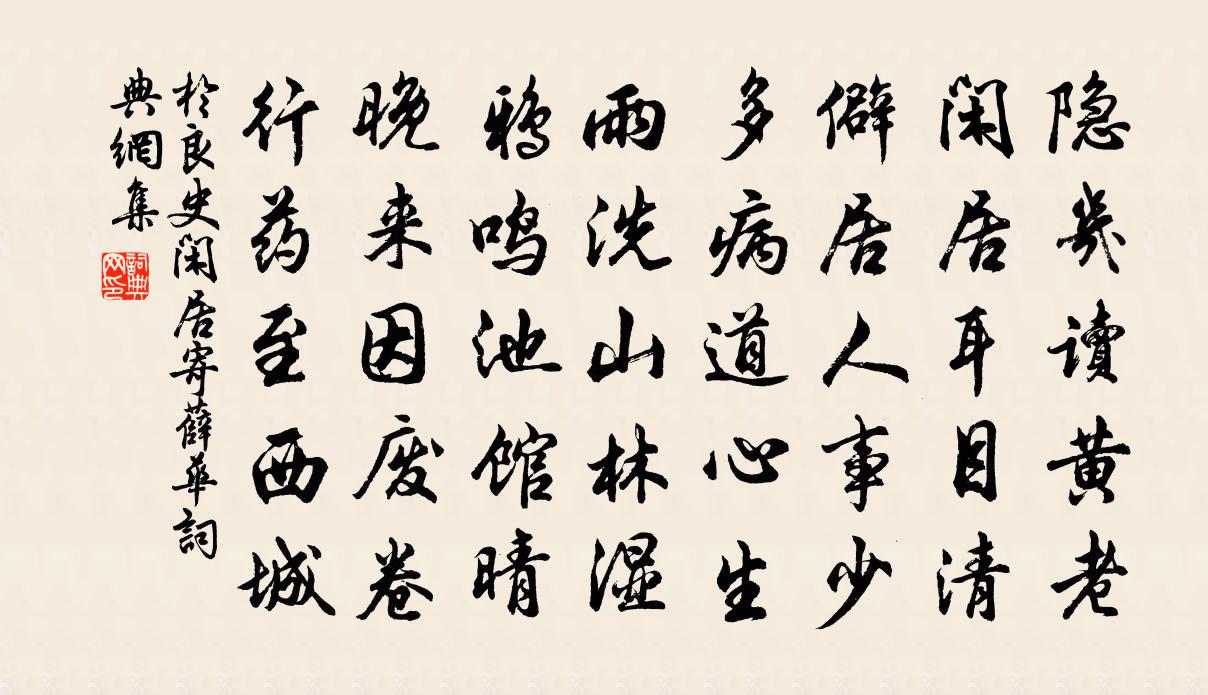 隐几讀黄老
闲居耳目清
僻居人事少
多病道心生
雨洗山林湿
鸦鸣池馆晴
晚来因废卷
行药至西城
於良史闲居寄薛華詞
典網集
詞典
网印